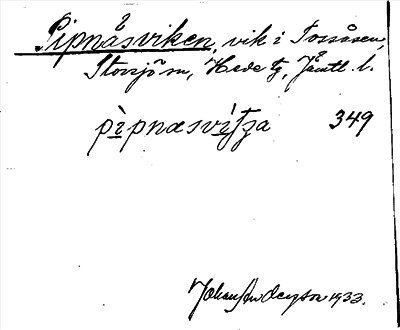 Pipnåsviken, vik i Tossåsen,
Storsjö sn, Hede tg, Jämtl. l.
pìpnæsvi̍tʒa 349
Johan Anderson 1933.